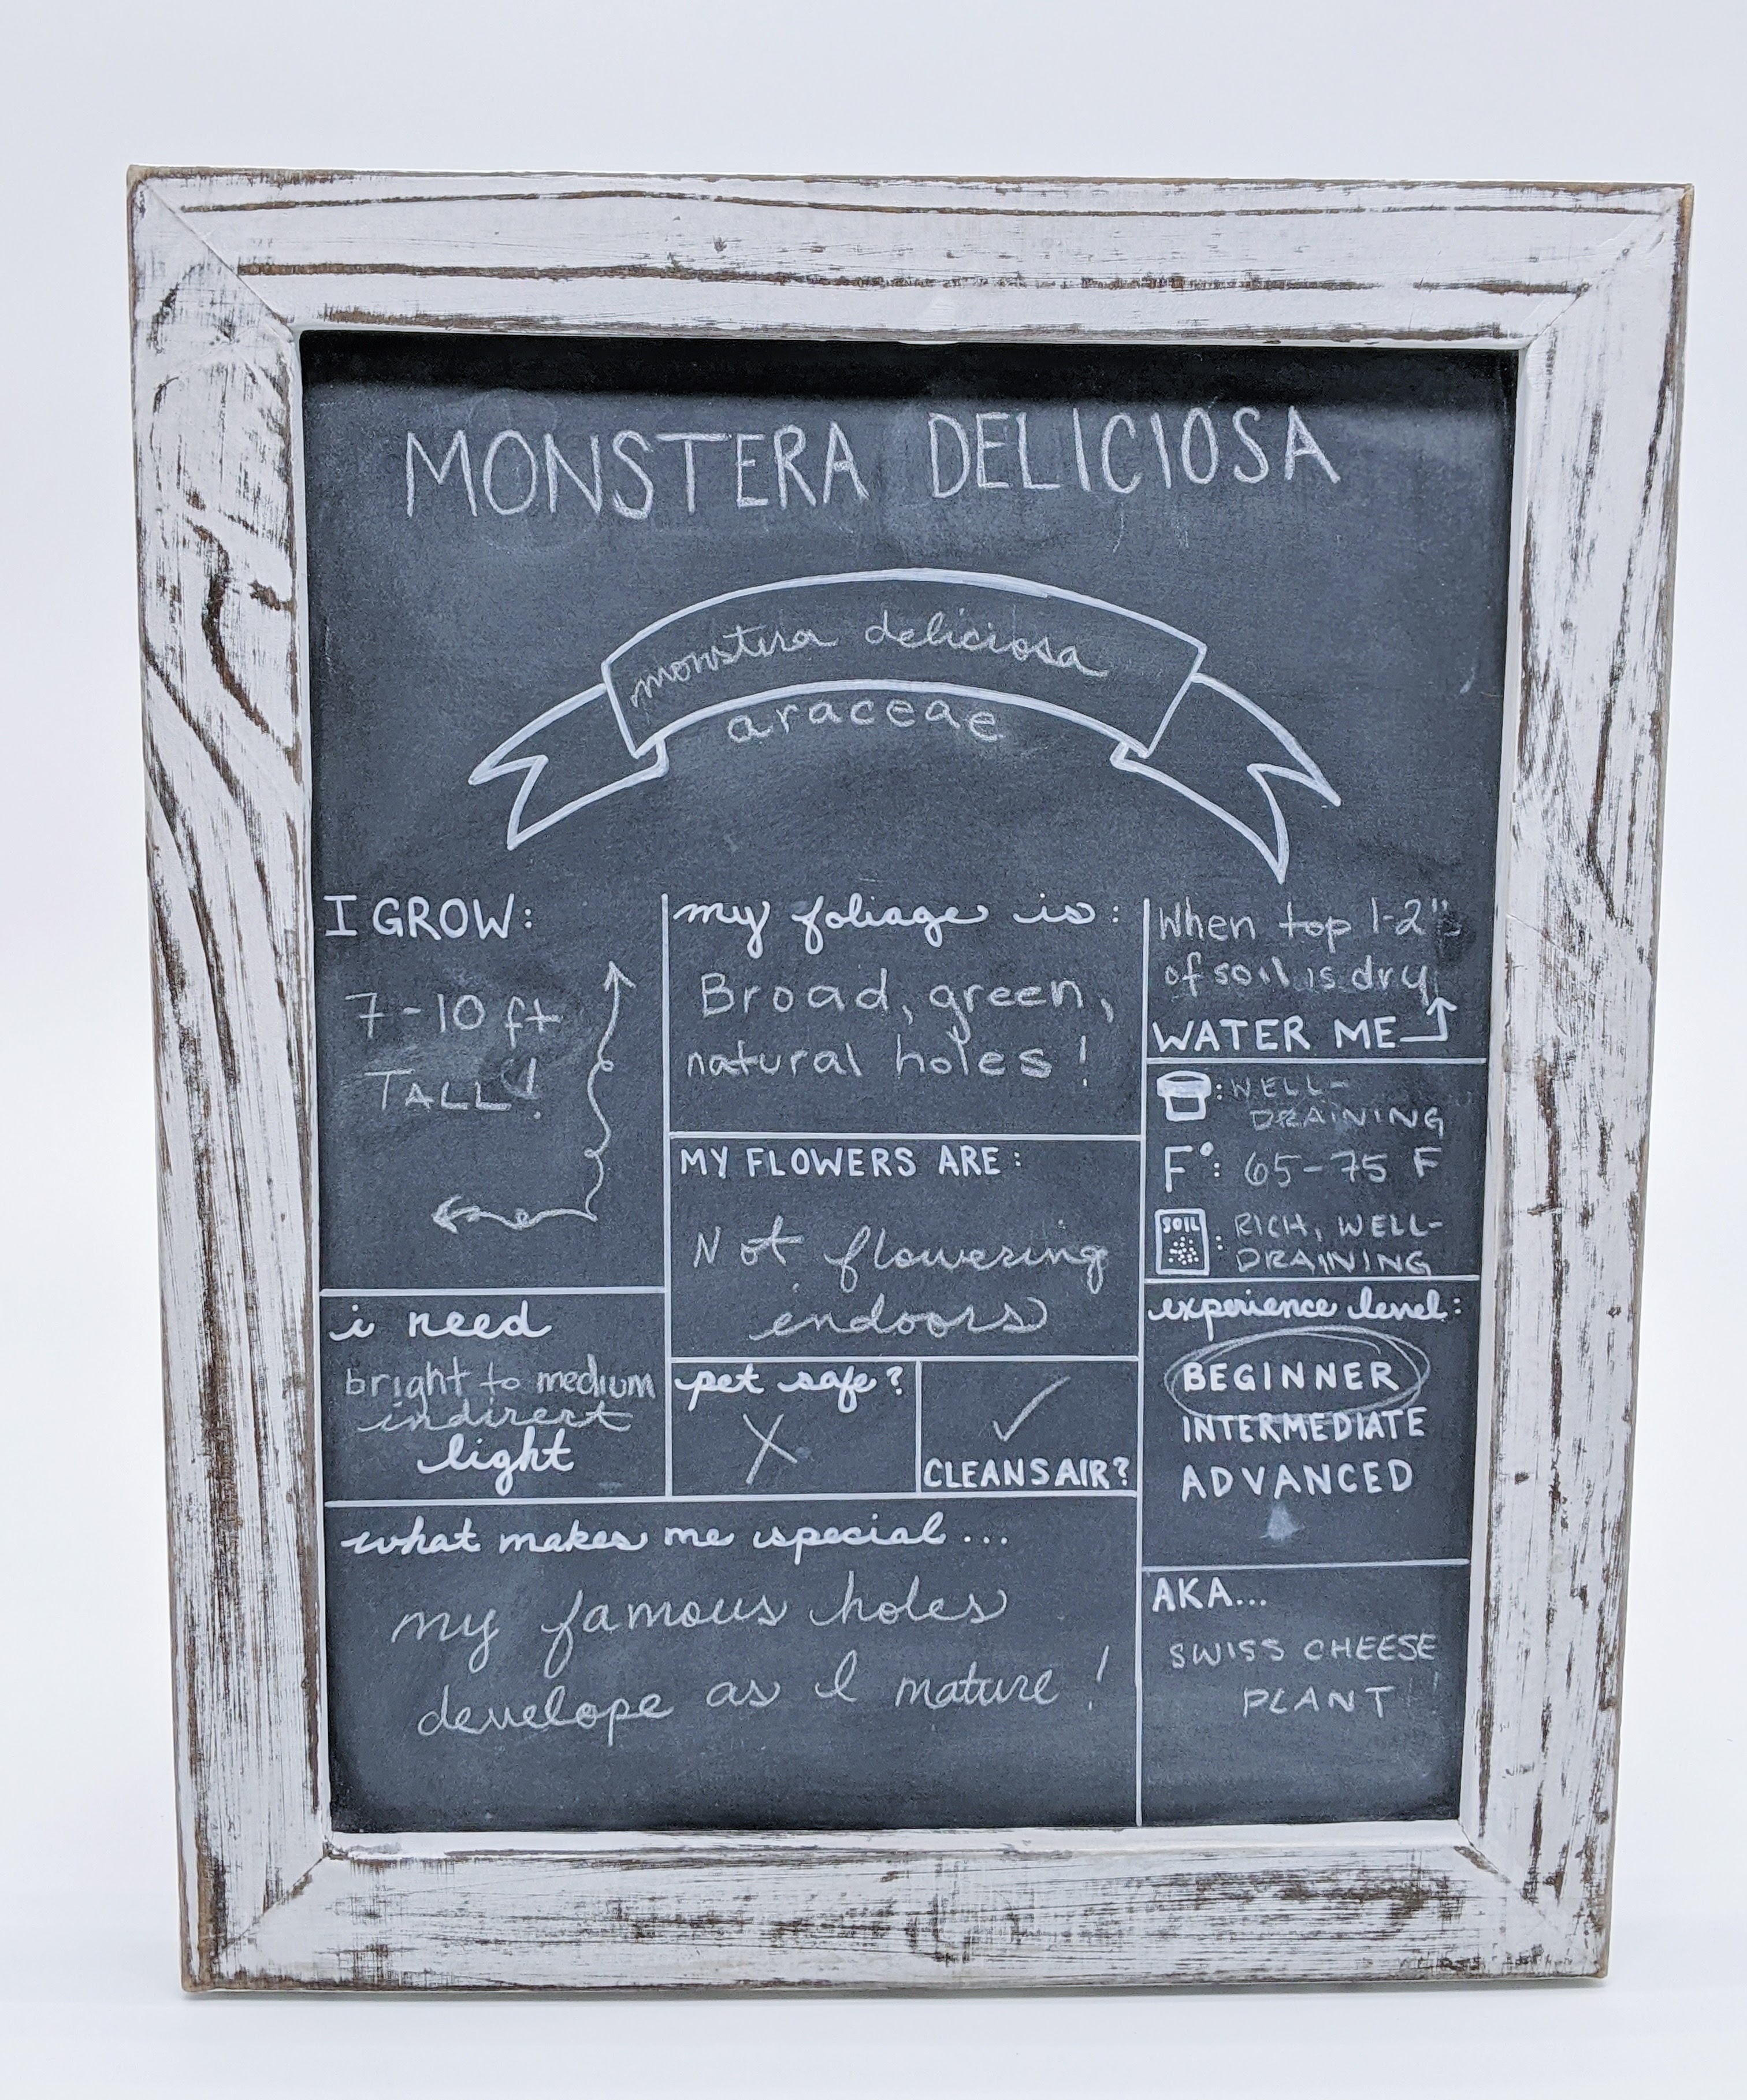 MONSTERA DELICIOSA
monstera deliciosa
araceae
I GROW:
7-10 ft
TALL!
i need
bright to medium
indirect
light
my foliage is:
Broad, green,
natural holes!
MY FLOWERS ARE:
Not flowering
indoors
pet safe?
X
✓
CLEANS AIR?
When top 1-2"
of soil is dry
WATER ME
: WELL-
DRAINING
F°: 65-75 F
SOIL : RICH, WELL-
DRAINING
experience level:
BEGINNER
INTERMEDIATE
ADVANCED
what makes me special...
my famous holes
develope as I mature!
AKA...
SWISS CHEESE
PLANT!